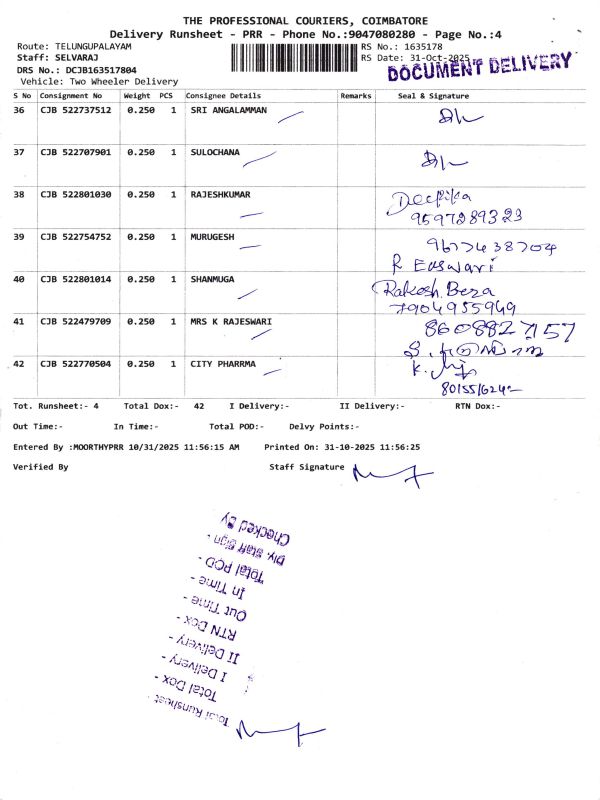 THE PROFESSIONAL COURIERS, COIMBATORE
Delivery Runsheet - PRR - Phone No.:9047080280 - Page No.:4
Route: TELUNGUPALAYAM RS No.: 1635178
Staff: SELVARAJ RS Date: 31-Oct-2025
DRS No.: DCJB163517804 DOCUMENT DELIVERY
Vehicle: Two Wheeler Delivery
S No Consignment No Weight PCS Consignee Details Remarks Seal & Signature
36 CJB 522737512 0.250 1 SRI ANGALAMMAN
37 CJB 522707901 0.250 1 SULOCHANA
38 CJB 522801030 0.250 1 RAJESHKUMAR Deepika
9597289323
39 CJB 522754752 0.250 1 MURUGESH 9677438704
R Easwari
40 CJB 522801014 0.250 1 SHANMUGA Rakesh Bera
7904955949
41 CJB 522479709 0.250 1 MRS K RAJESWARI 8608827157
42 CJB 522770504 0.250 1 CITY PHARRMA
Tot. Runsheet:- 4 Total Dox:- 42 I Delivery:- II Delivery:- RTN Dox:-
Out Time:- In Time:- Total POD:- Delvy Points:-
Entered By :MOORTHYPRR 10/31/2025 11:56:15 AM Printed On: 31-10-2025 11:56:25
Verified By Staff Signature
Total Runsheet -
Total Dox -
I Delivery -
II Delivery -
RTN Dox -
Out Time -
In Time -
Total POD -
Dly. Staff Sign -
Checked By